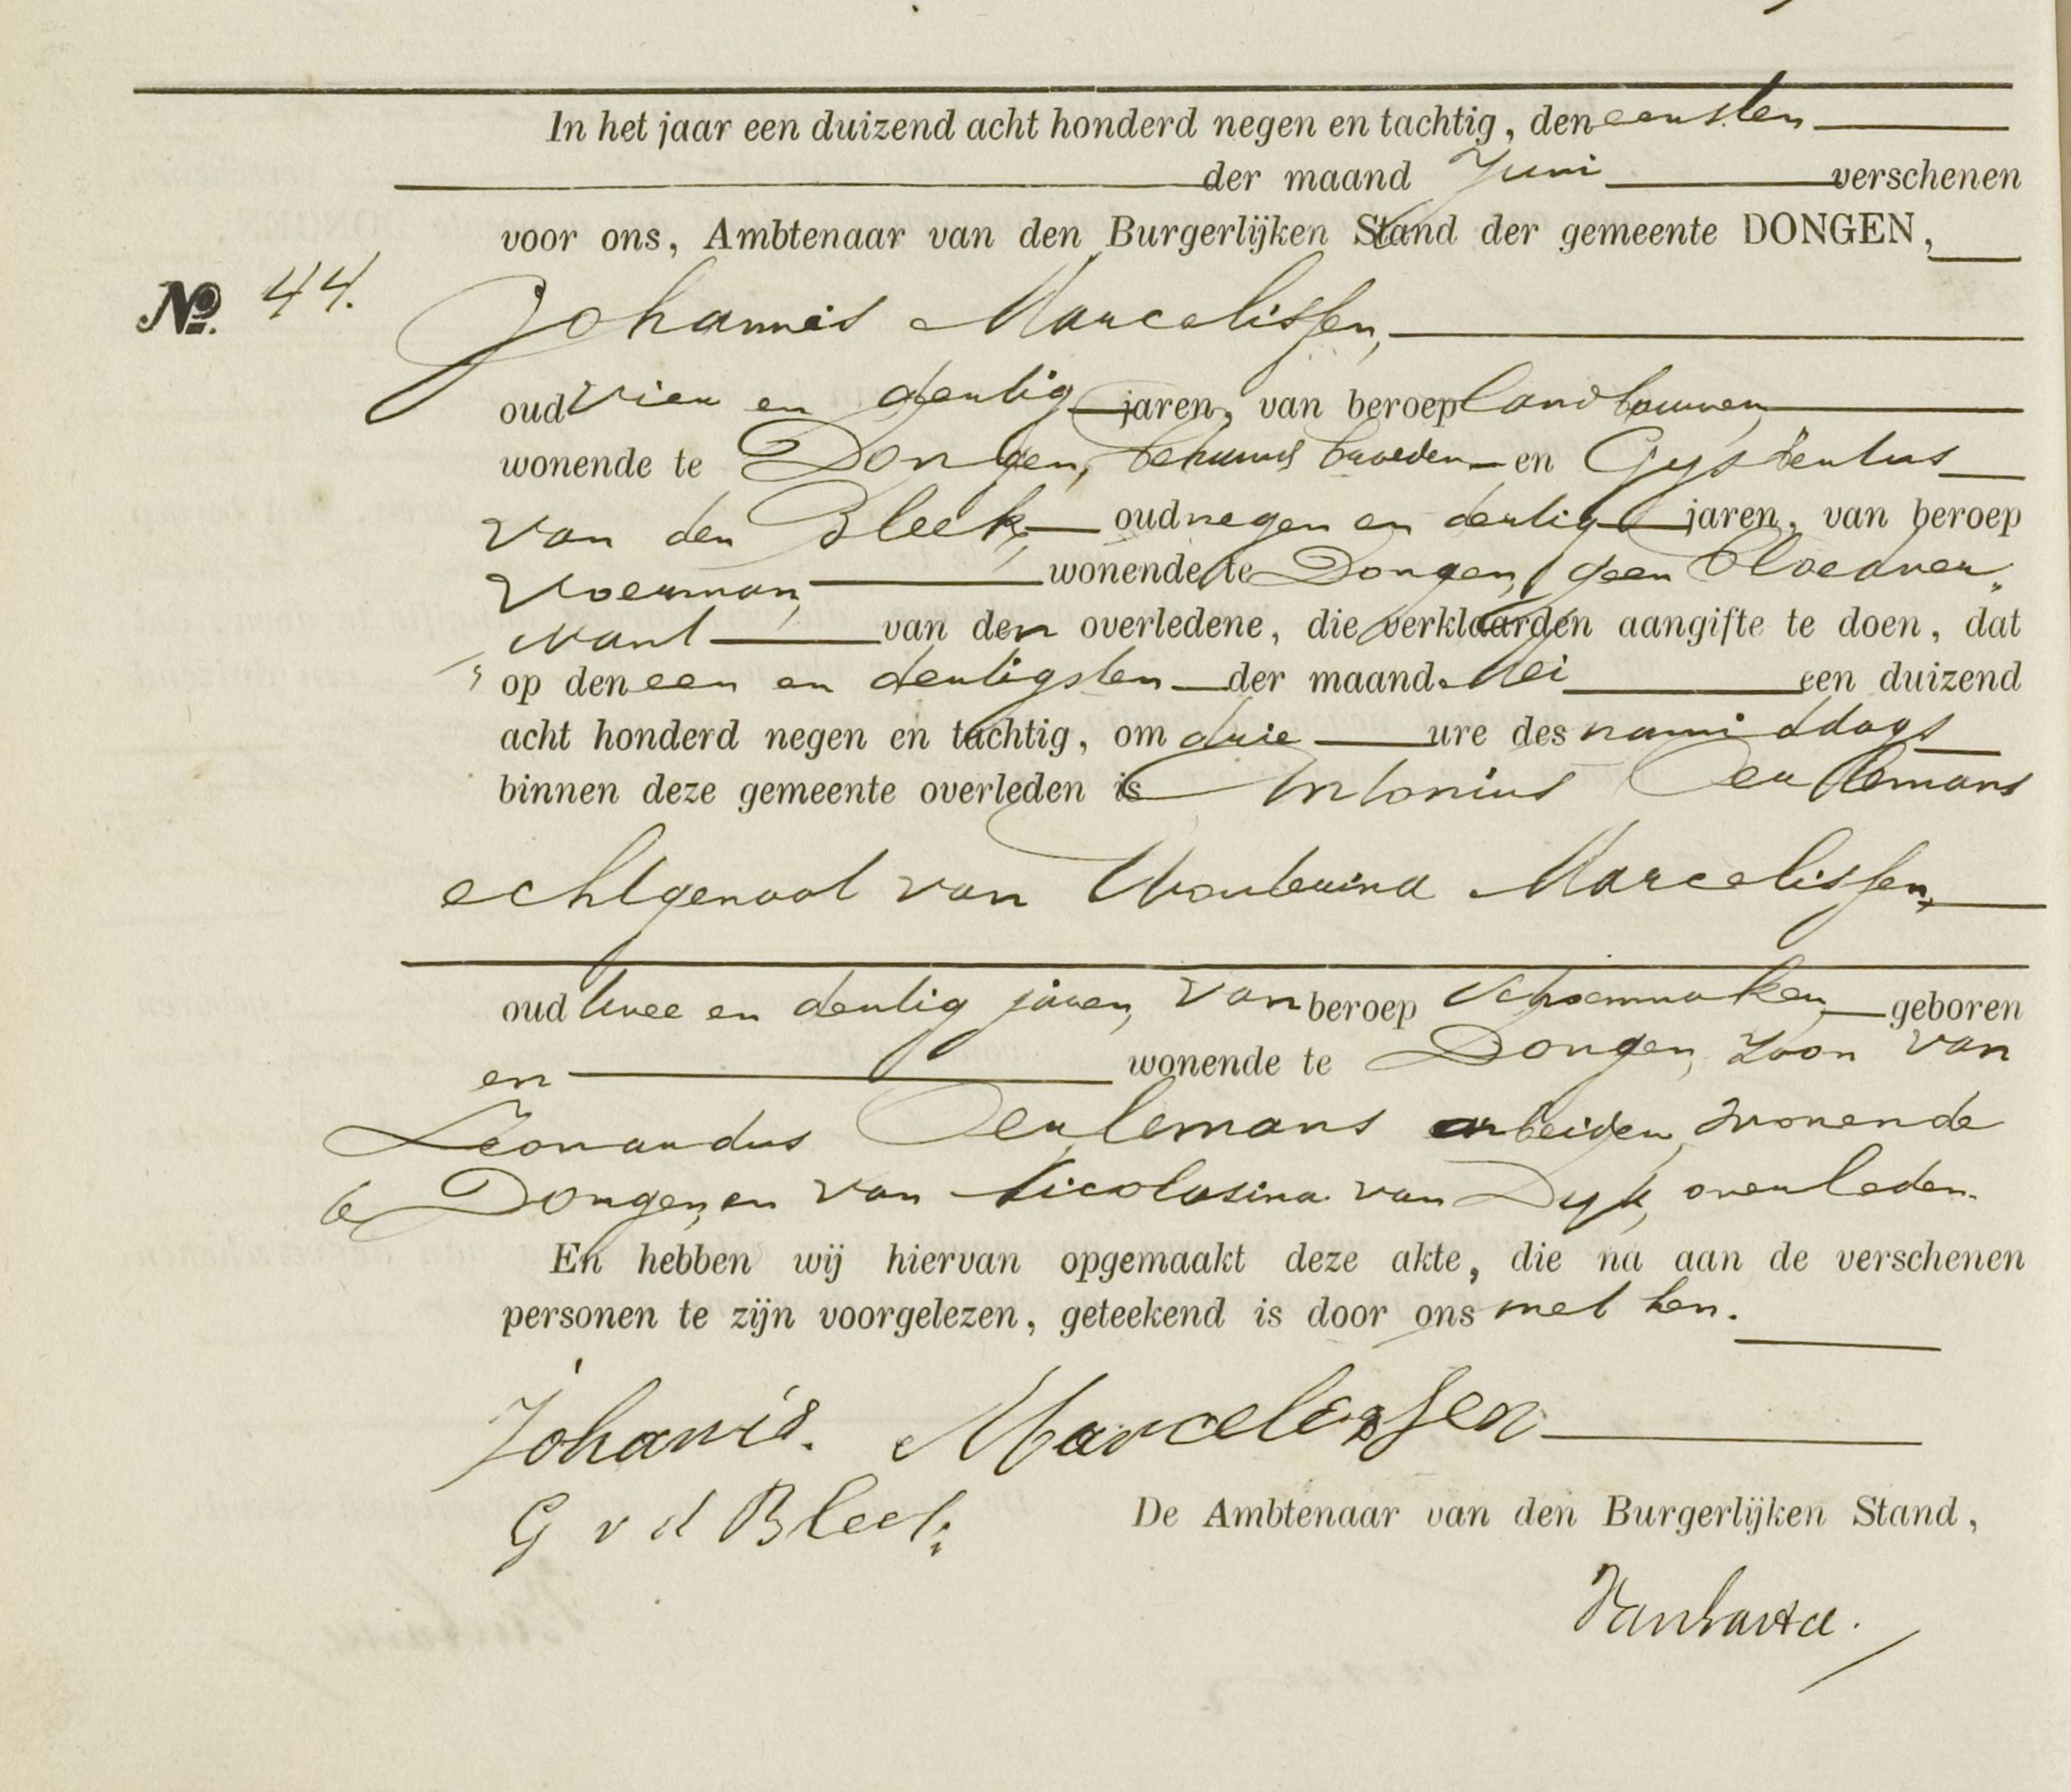 In het jaar een duizend acht honderd negen en tachtig, den eersten
der maand Juni verschenen
voor ons, Ambtenaar van den Burgerlijken Stand der gemeente DONGEN,
No. 44.
Johannis Marcelissen,
oud vier en dertig jaren, van beroep landbouwer,
wonende te Dongen, behuwd broeder en Gysbertus
van den Bleek, oud negen en dertig jaren, van beroep
voerman, wonende te Dongen, geen bloedver„
want van den overledene, die verklaarden aangifte te doen, dat
op den een en dertigsten der maand Mei een duizend
acht honderd negen en tachtig, om drie ure des namiddags
binnen deze gemeente overleden is Antonius Oerlemans
echtgenoot van Wouterina Marcelissen,
oud twee en dertig jaren, van beroep schoenmaker, geboren
en wonende te Dongen, zoon van
Leonardus Oerlemans arbeider, wonende
te Dongen, en van Nicolasina van Dyk, overleden.
En hebben wij hiervan opgemaakt deze akte, die na aan de verschenen
personen te zijn voorgelezen, geteekend is door ons met hen.
Johanis. Marcelessen
G v d Bleek
De Ambtenaar van den Burgerlijken Stand,